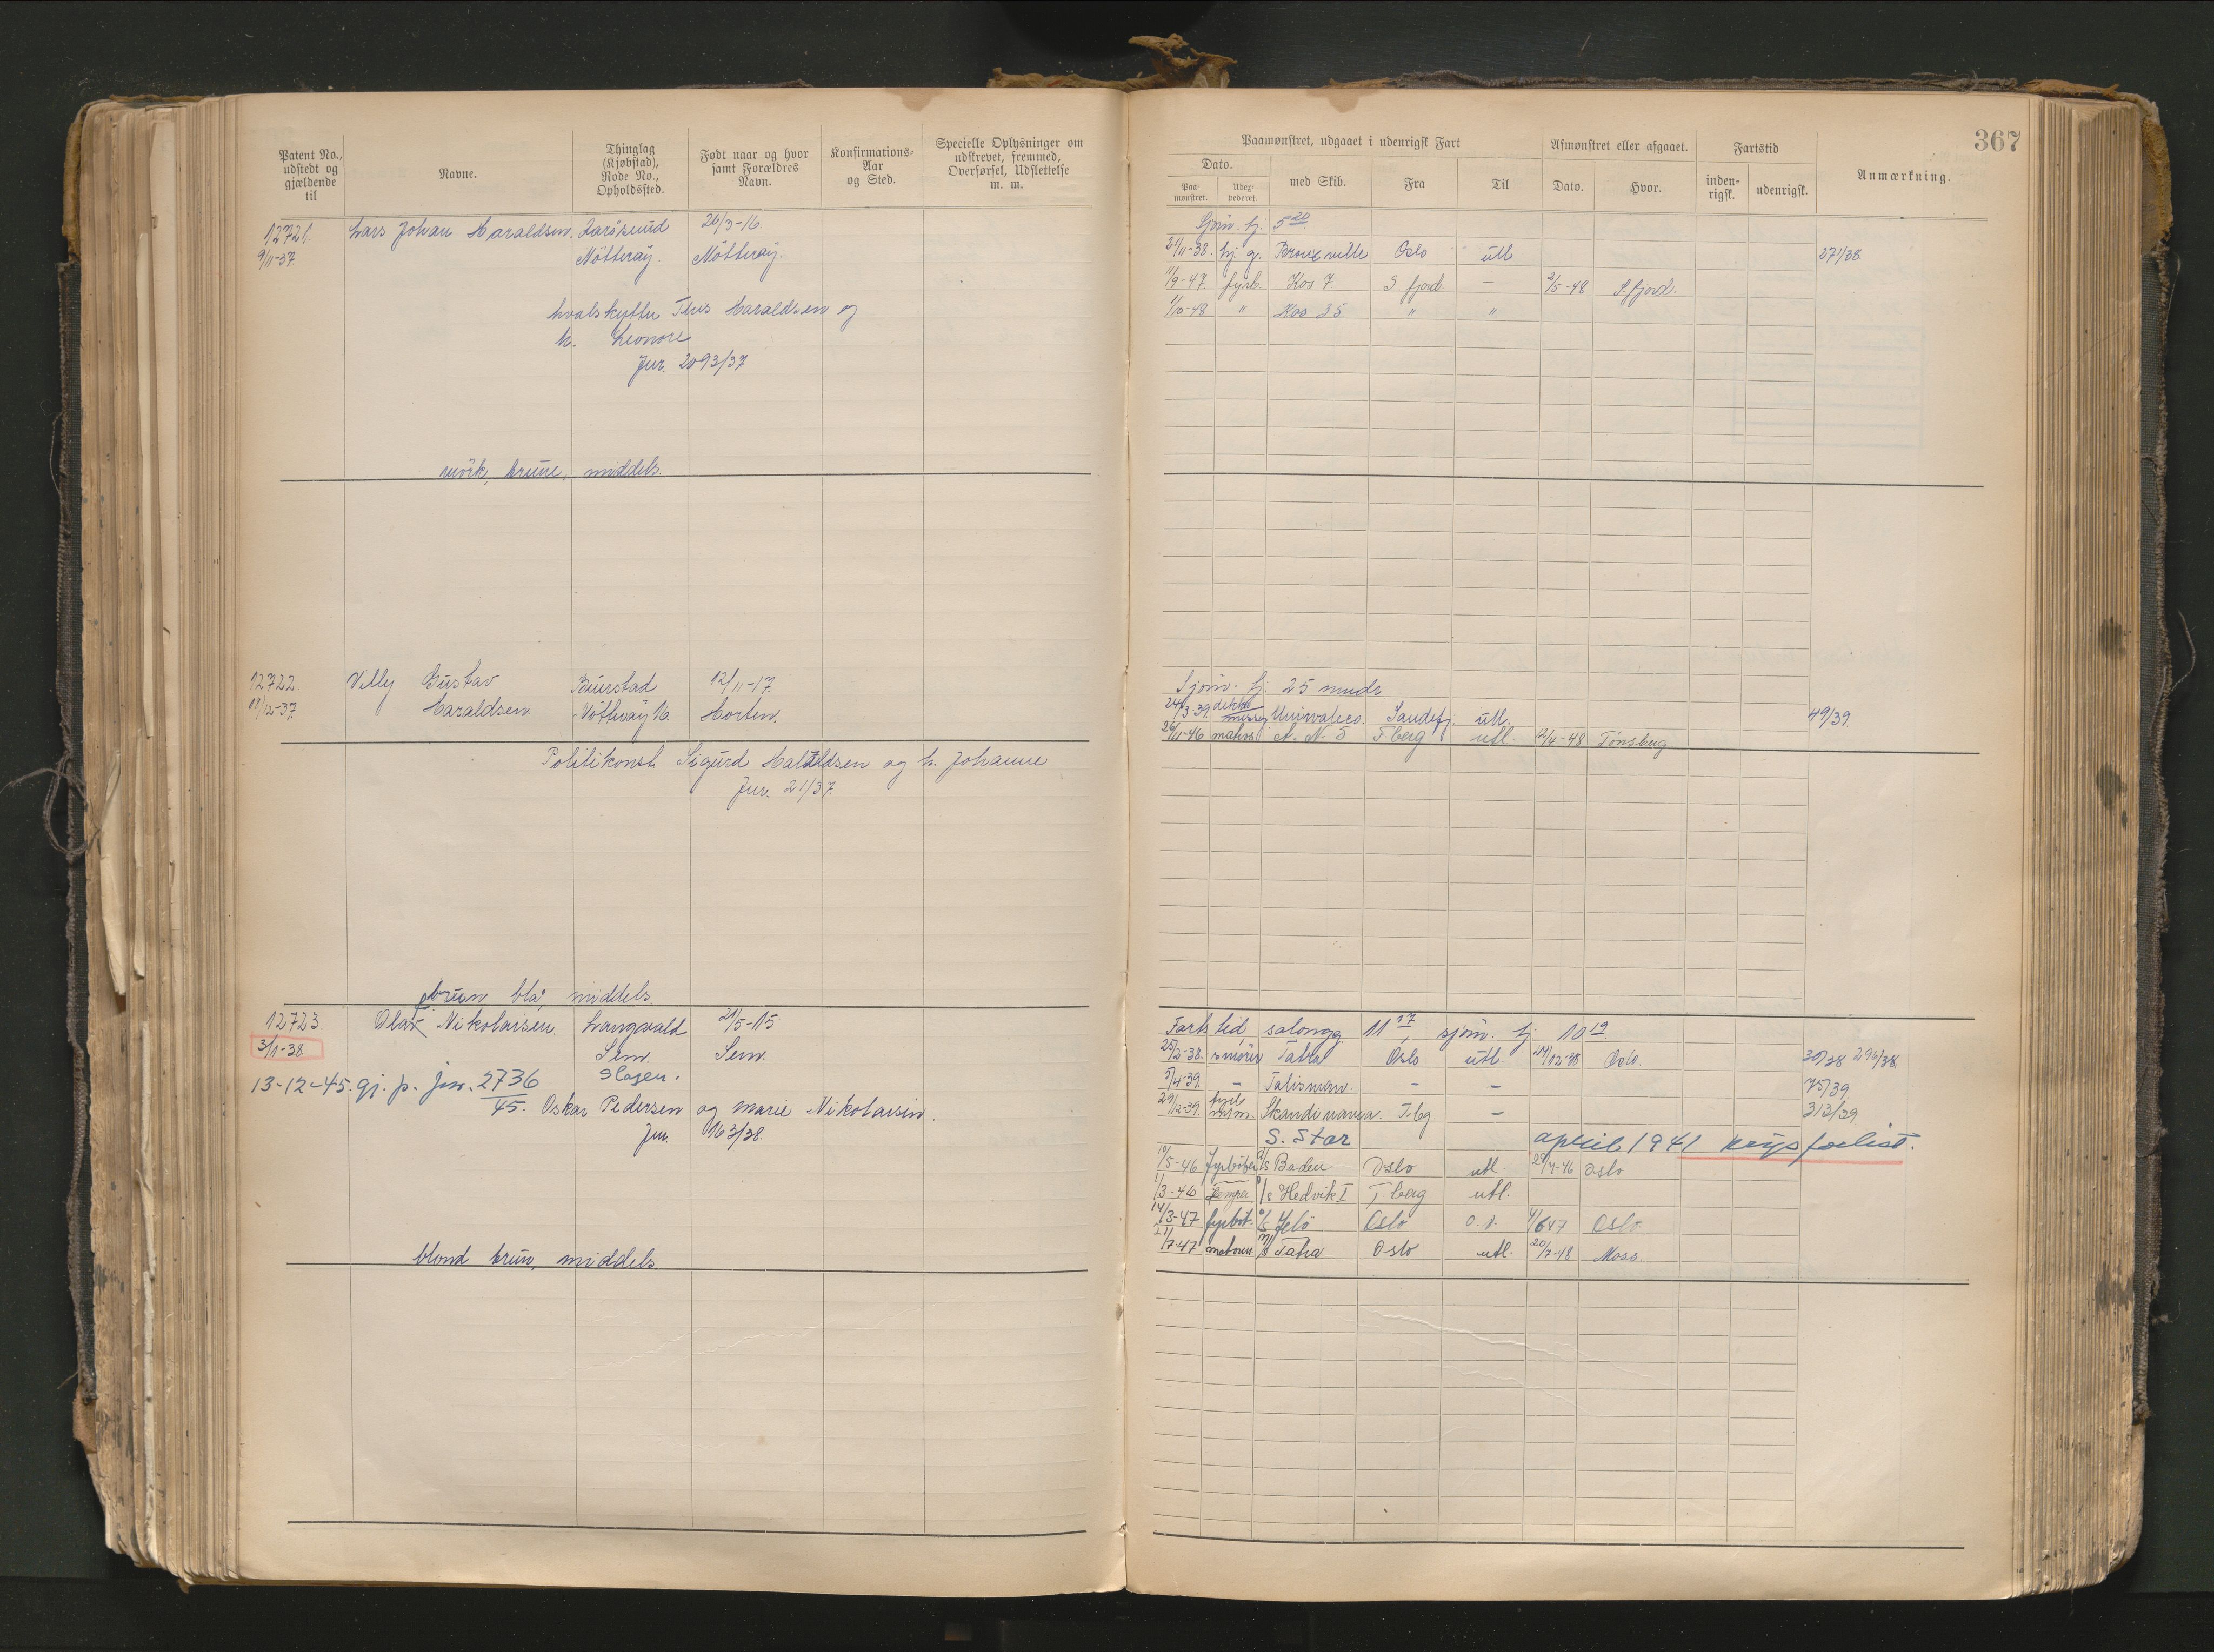 367
Patent No., udstedt og gjældende til
Navne.
Thinglag (Kjøbstad), Rode No., Opholdssted.
Født naar og hvor samt Forældres Navn.
Konfirmations-Aar og Sted.
Specielle Oplysninger om udskrevet, fremmed, Overførsel, Udslettelse m. m.
Paamønstret, udgaaet i udenrigsk Fart
Afmønstret eller afgaaet.
Fartstid
Anmærkning.
Dato.
Paa-mønstret.
med Skib.
Fra
Til
Dato.
Hvor.
inden-rigsk.
udenrigsk.
12721. Lars Johan Haraldsen. 26/3-16
9/11-37 Nøtterøy. Nøtterøy.
hvalskytter Haraldsen og
h. Leonore
Jur. 2093/37
mörk, brune, middels.
Sjøm. hj. 5 20
21/11-38. hj. g. Oslo utl 271/38
11/9-47. fyrb. Kos 7. S. fjord. — 2/5-48 S. fjord.
1/10-48 " Kos 35 " "
12722. Villy Gustav Burstad 12/11-17
Haraldsen Nøtterøy Horten.
Politikonst. Sigurd Haraldsen og h. Johanne
Jur. 21/37
brun blå middels.
Sjøm. hj. 25 mndr.
24/3-39. Sandefj. utl. 49/39.
26/11-46 matros A. N. 5 T-berg utl. 2/4-48 Tønsberg
12723. Olaf Nikolaisen. Langvald 21/5-15
3/1-38. Sem. Sem.
Slagen.
13-12-45. gj. p. jnr. 2736/45.
Oskar Pedersen og Marie Nikolaisen.
Jur. 163/38.
blond brun, middels
Fartstid salongg. 11 27, sjøm. hj. 10 19
25/2-38. smører Tatra Oslo utl. 24/12-38 Oslo. 30/38 296/38.
5/4-39. — Talisman. — — 75/39.
29/12-39. Skandinavia. T.bg — 313/39.
S. Star april 1941 krigsforlist.
10/5-46. Fyrbøter D/s Baden Oslo utl. Oslo
1/3-46 D/s Hedvik I T.berg utl.
14/3-47 fyrbøt. D/s Jelö Oslo 4/6 47 Oslo
21/7-47 motorm. M/s Tatra Oslo utl. 20/7-48 Moss.